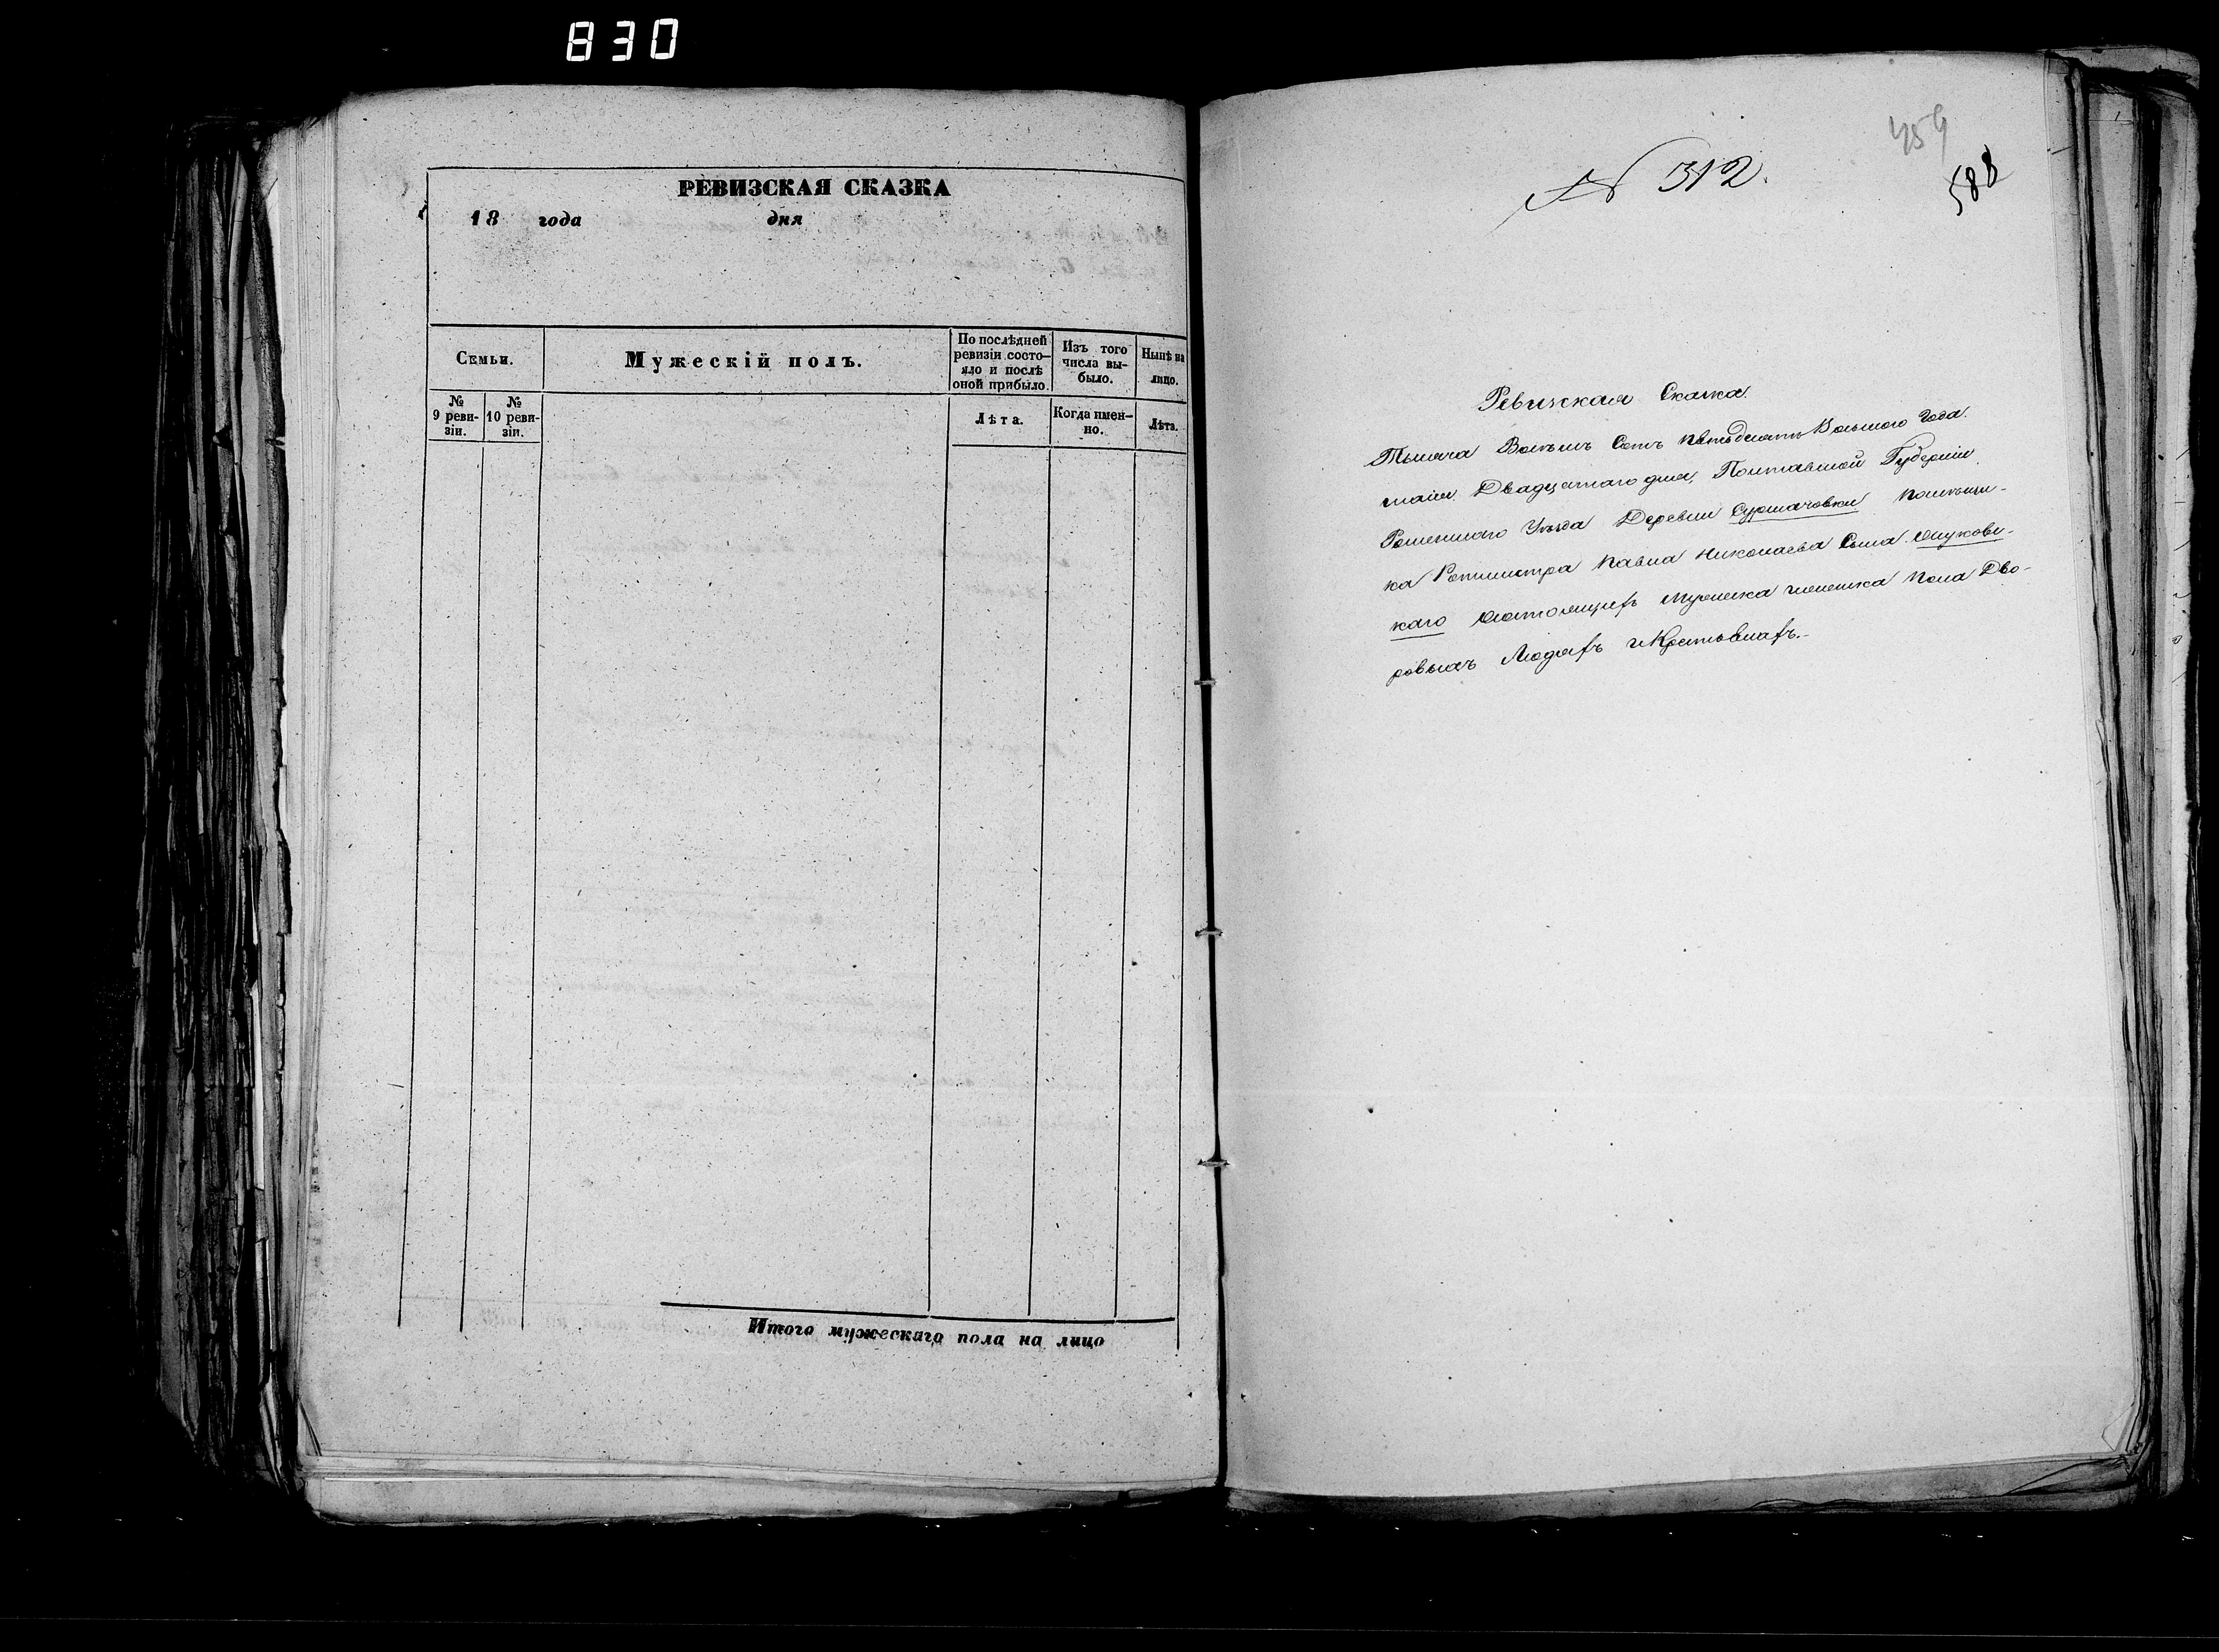 830
РЕВИЗСКАЯ СКАЗКА
18 года дня
Семьи.
Мужескій полъ.
По послѣдней ревизіи состо-
яло и послѣ оной прибыло.
Изъ того числа вы-
было.
Нынѣ на лицо.
№ 9 реви-
зіи.
№ 10 реви-
зіи.
Лѣта.
Когда имен-
но.
Лѣта.
Итого мужескаго пола на лицо
459
588
N 312.
Ревизская Сказка.
Тысяча Восемь Сотъ пятьдесятъ Восьмого Года.
маія Двадцатаго дня, Полтавской Губерніи
Роменскаго Уѣзда Деревни Сурмачовки помѣщи-
ка Ротмистра Павла Николаева Сына
каго Состоящихъ мужеска женска пола Дво-
ровыхъ Людяхъ и Крестьянахъ.-